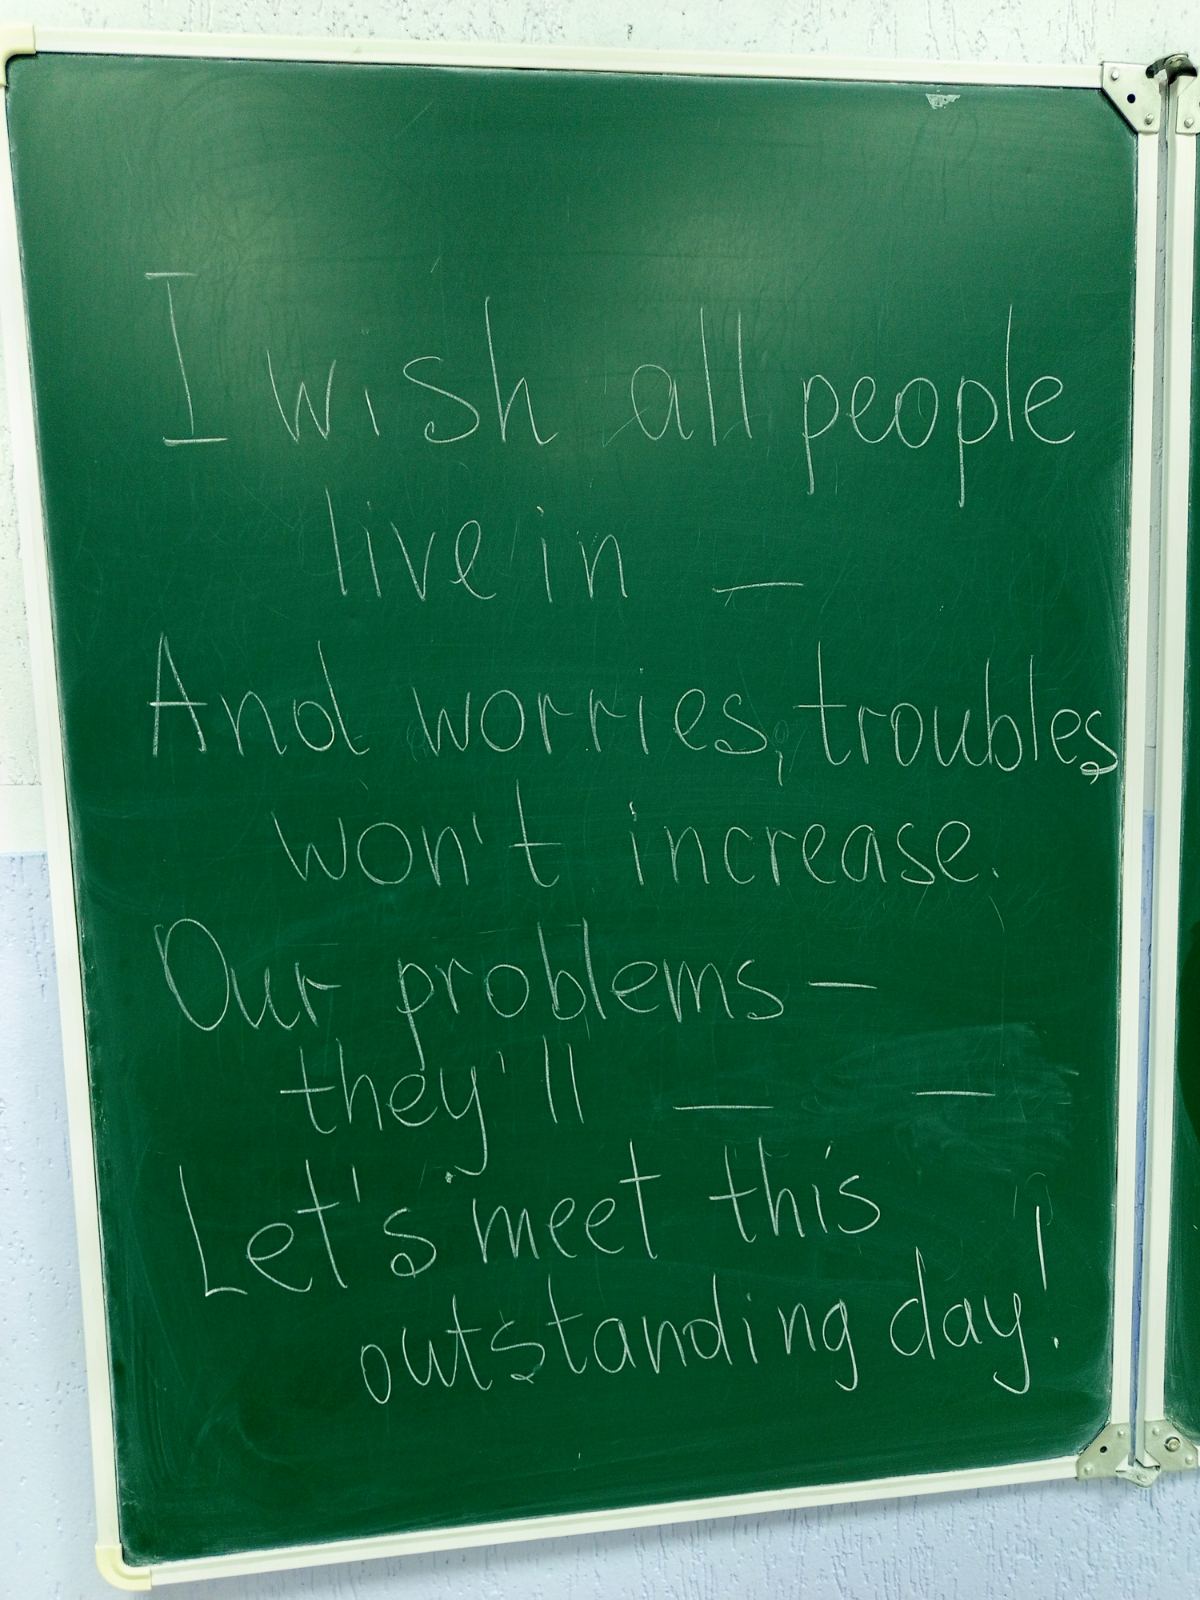 I wish all people
live in _
And worries, troubles
won't increase.
Our problems –
they'll _ _
Let's meet this
outstanding day!